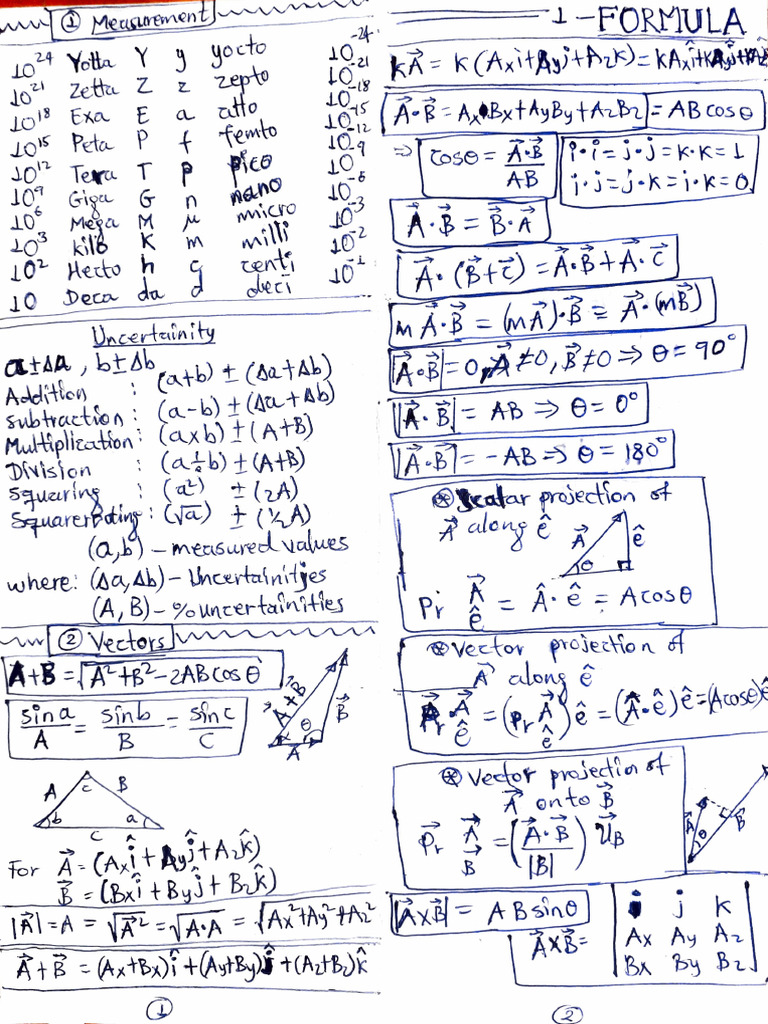 ① Measurement
10²⁴ Yotta Y y yocto 10⁻²⁴
10²¹ Zetta Z z zepto 10⁻²¹
10¹⁸ Exa E a atto 10⁻¹⁸
10¹⁵ Peta P f femto 10⁻¹⁵
10¹² Tera T p pico 10⁻¹²
10⁹ Giga G n nano 10⁻⁹
10⁶ Mega M μ micro 10⁻⁶
10³ kilo K m milli 10⁻³
10² Hecto h c centi 10⁻²
10 Deca da d deci 10⁻¹
Uncertainity
a±Δa, b±Δb
Addition : (a+b) ± (Δa+Δb)
subtraction : (a-b) ± (Δa+Δb)
Multiplication : (a×b) ± (A+B)
Division : (a÷b) ± (A+B)
Squaring : (a²) ± (2A)
Squarerooting : (√a) ± (½A)
(a,b) – measured values
where: (Δa,Δb) – Uncertainities
(A, B) – % uncertainities
② Vectors
A+B = √A²+B²-2ABcosθ
sina/A = sinb/B = sinc/C
A+B B θ A
A c B
b a
C
For A⃗ = (Axî+Ayĵ+Azk̂)
B⃗ = (Bxî+Byĵ+Bzk̂)
|A⃗| = A = √A⃗² = √A·A = √Ax²+Ay²+Az²
A⃗+B⃗ = (Ax+Bx)î+(Ay+By)ĵ+(Az+Bz)k̂
①
1 – FORMULA
kA⃗ = k(Axi+Ayj+Azk) = kAxî+kAyĵ+kAzk̂
A⃗·B⃗ = AxBx+AyBy+AzBz = ABcosθ
⇒ cosθ = A⃗·B⃗/AB
i·i=j·j=k·k=1
i·j=j·k=i·k=0
A⃗·B⃗ = B⃗·A⃗
A⃗·(B⃗+c⃗) = A⃗·B⃗+A⃗·c⃗
mA⃗·B⃗ = (mA⃗)·B⃗ = A⃗·(mB⃗)
|A⃗·B⃗| = 0, A⃗≠0, B⃗≠0 ⇒ θ = 90°
|A⃗·B⃗| = AB ⇒ θ = 0°
|A⃗·B⃗| = -AB ⇒ θ = 180°
⊛ Scalar projection of
A⃗ along ê
A⃗ ê θ
Pr A⃗/ê = Â·ê = Acosθ
⊛ Vector projection of
A⃗ along ê
P⃗r A⃗/ê = (Pr A⃗/ê) ê = (A⃗·ê)ê = (Acosθ)ê
⊛ Vector projection of
A⃗ onto B⃗
P⃗r A⃗/B⃗ = (A⃗·B⃗/|B|) U⃗B
A⃗ θ B⃗
|A⃗×B⃗| = ABsinθ
A⃗×B⃗ = | i j k
Ax Ay Az
Bx By Bz |
②